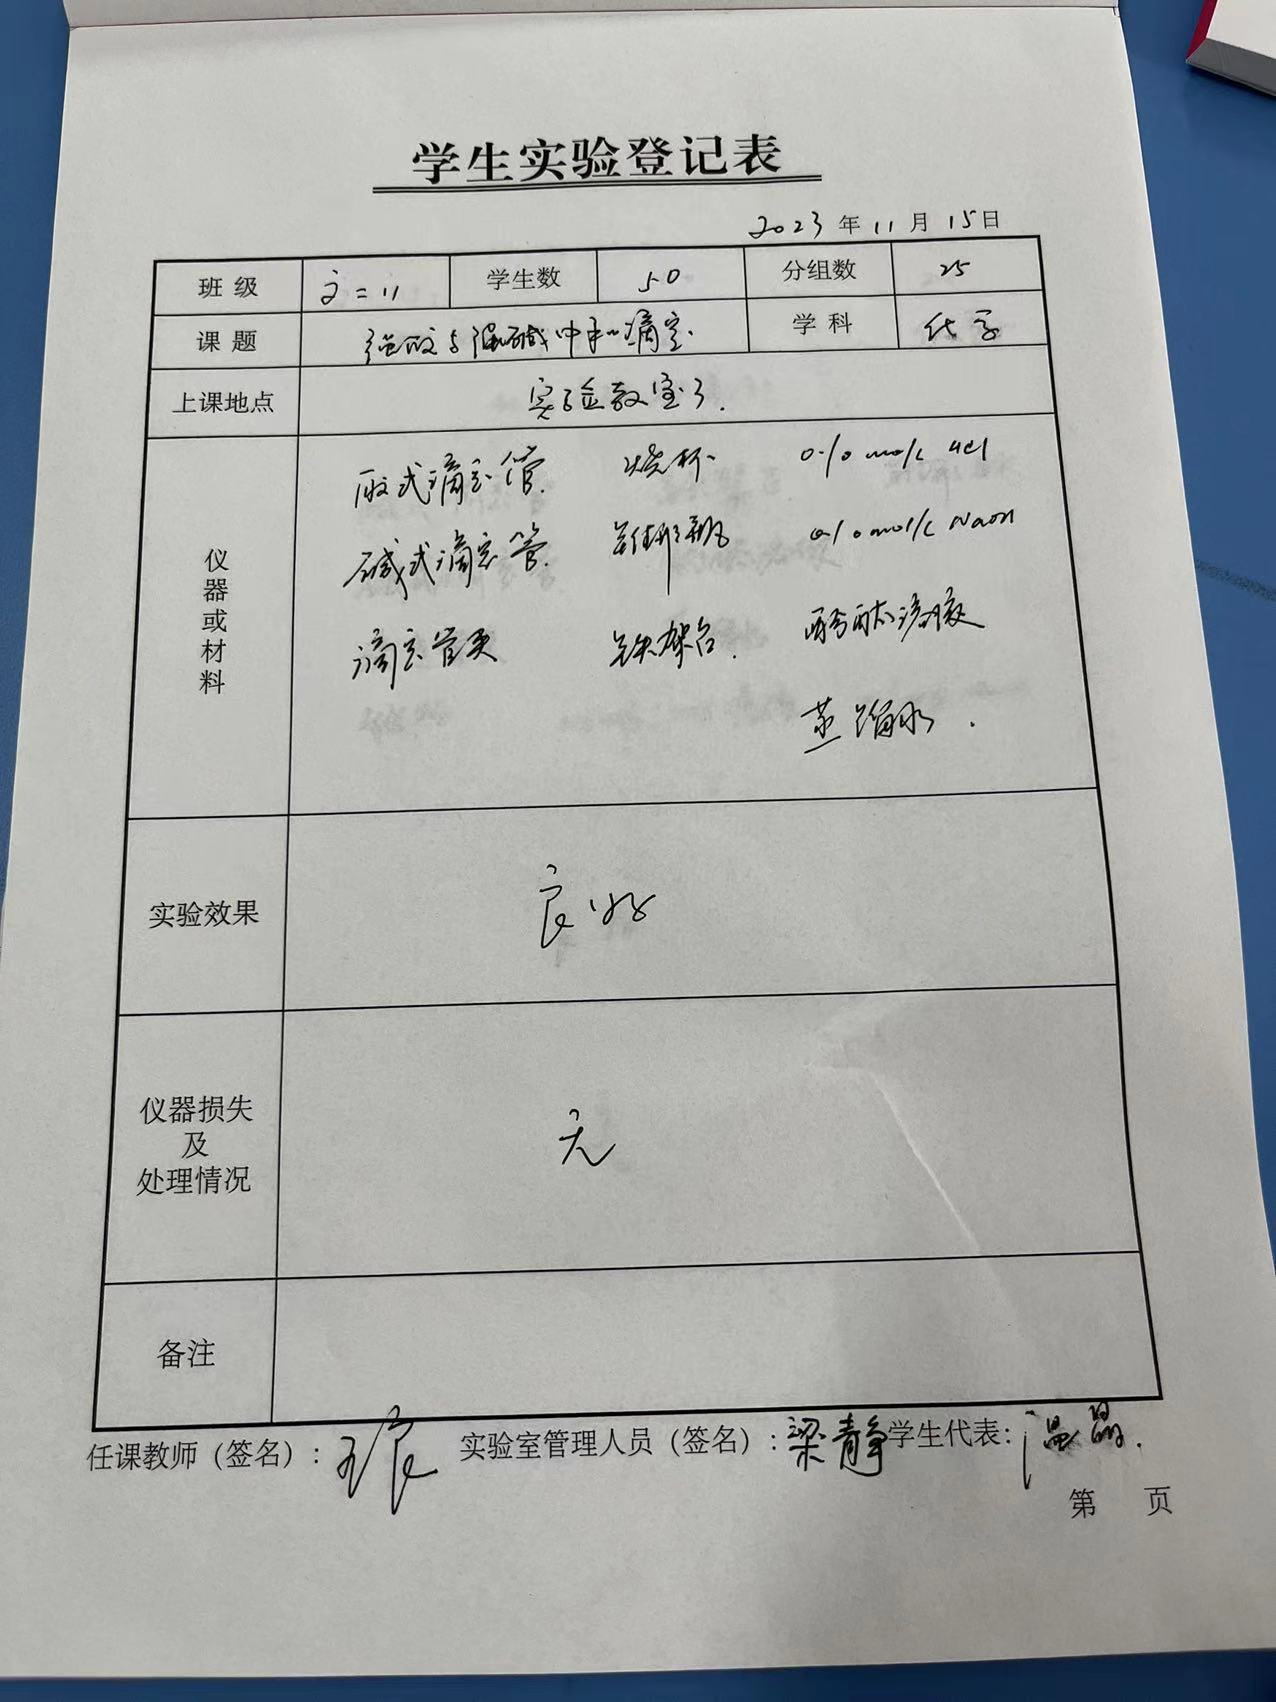 学生实验登记表
2023年11月15日
班级 高二11 学生数 50 分组数 25
课题 强酸与强碱中和滴定. 学科 化学
上课地点 实验教室3.
仪器或材料
酸式滴定管. 烧杯 0.10 mol/L HCl
碱式滴定管. 锥形瓶 0.10 mol/L NaOH
滴定管夹 铁架台. 酚酞溶液
蒸馏水.
实验效果 良好
仪器损失
及 无
处理情况
备注
任课教师（签名）： 实验室管理人员（签名）：梁静 学生代表：温
第 页